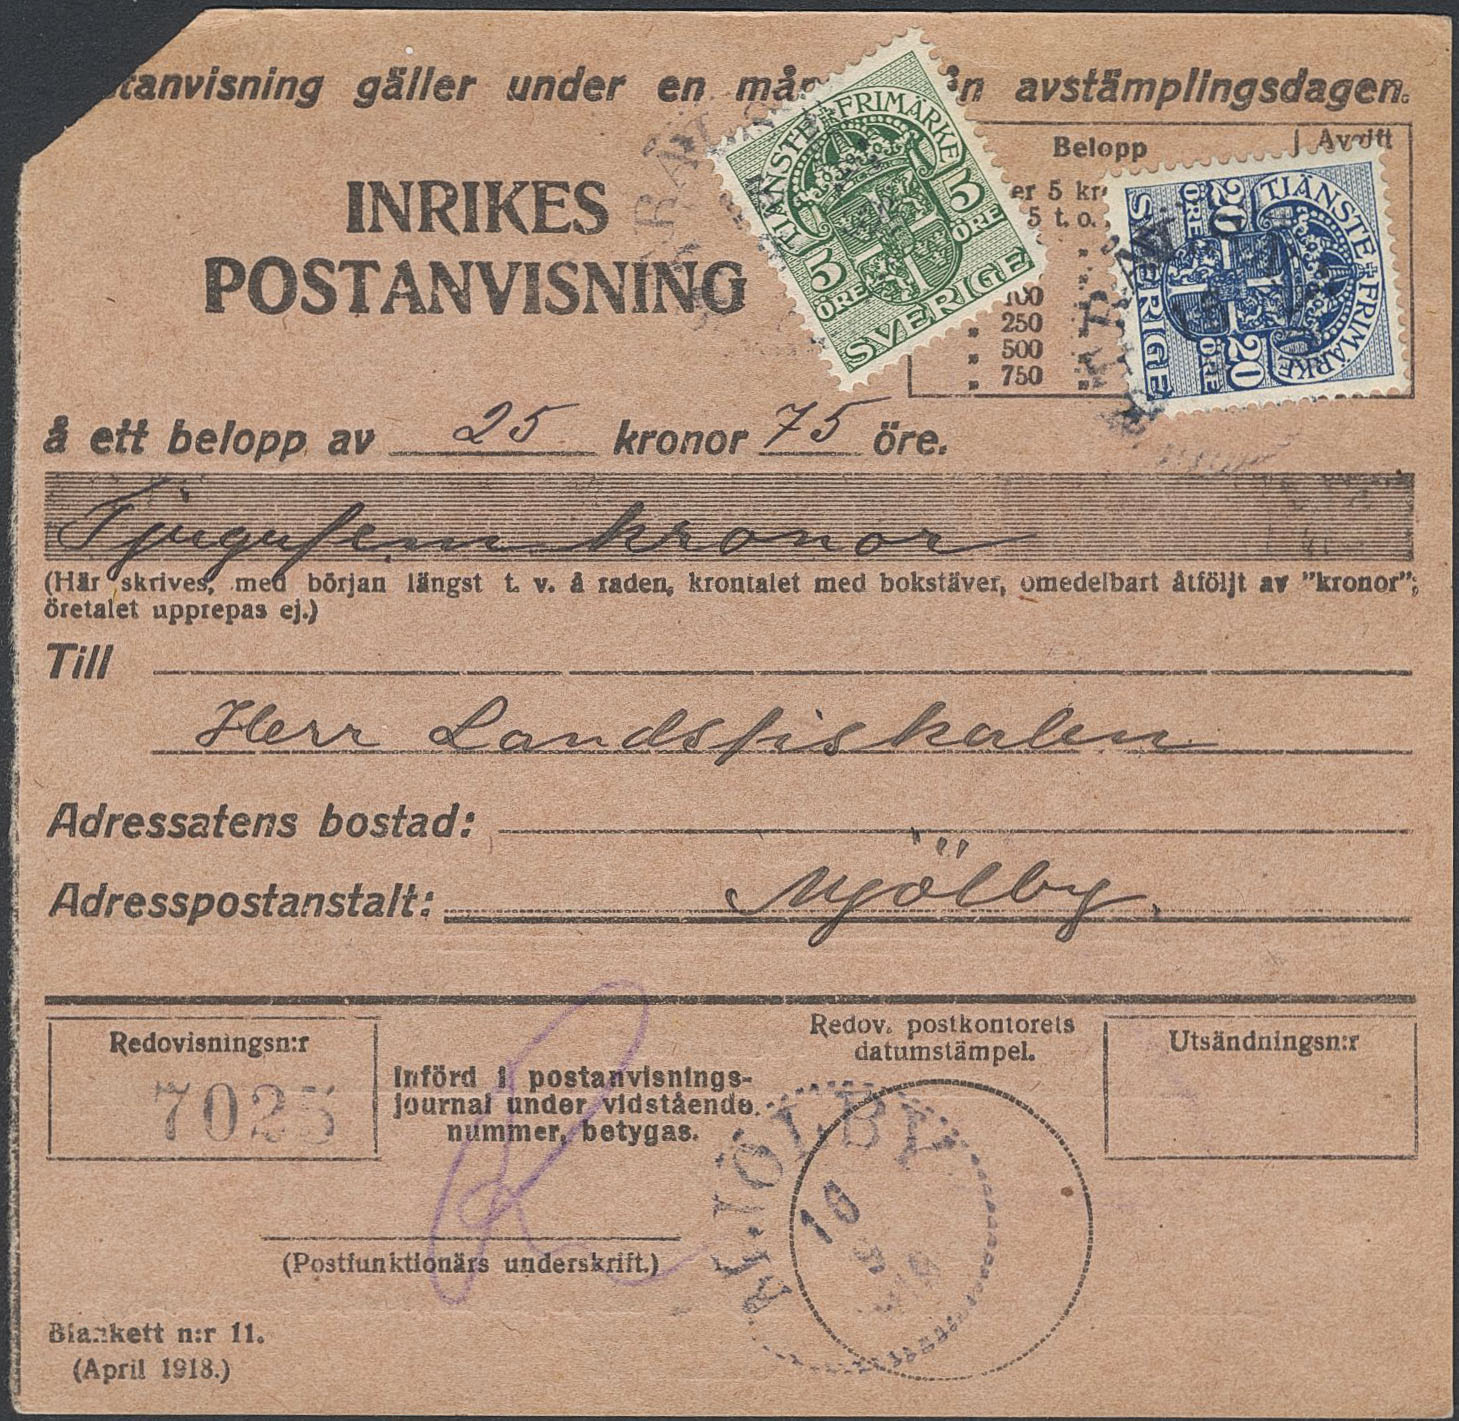 tanvisning gäller under en mån avstämplingsdagen.
Belopp Avgift
INRIKES
POSTANVISNING
TJÄNSTE FRIMÄRKE
5 ÖRE 5 ÖRE
SVERIGE
TJÄNSTE FRIMÄRKE
20 ÖRE 20 ÖRE
SVERIGE
er 5 kr
5 t. o.
100
„ 250 „
„ 500 „
„ 750 „
å ett belopp av 25 kronor 75 öre.
Tjugufem kronor
(Här skrives, med början längst t. v. å raden, krontalet med bokstäver, omedelbart åtföljt av ”kronor”;
öretalet upprepas ej.)
Till
Herr Landsfiskalen
Adressatens bostad:
Adresspostanstalt: Mjölby.
Redovisningsn:r
7025
Införd i postanvisnings-
journal under vidstående
nummer, betygas.
Redov. postkontorets
datumstämpel.
Utsändningsn:r
MJÖLBY
16
(Postfunktionärs underskrift.)
Blankett n:r 11.
(April 1918.)